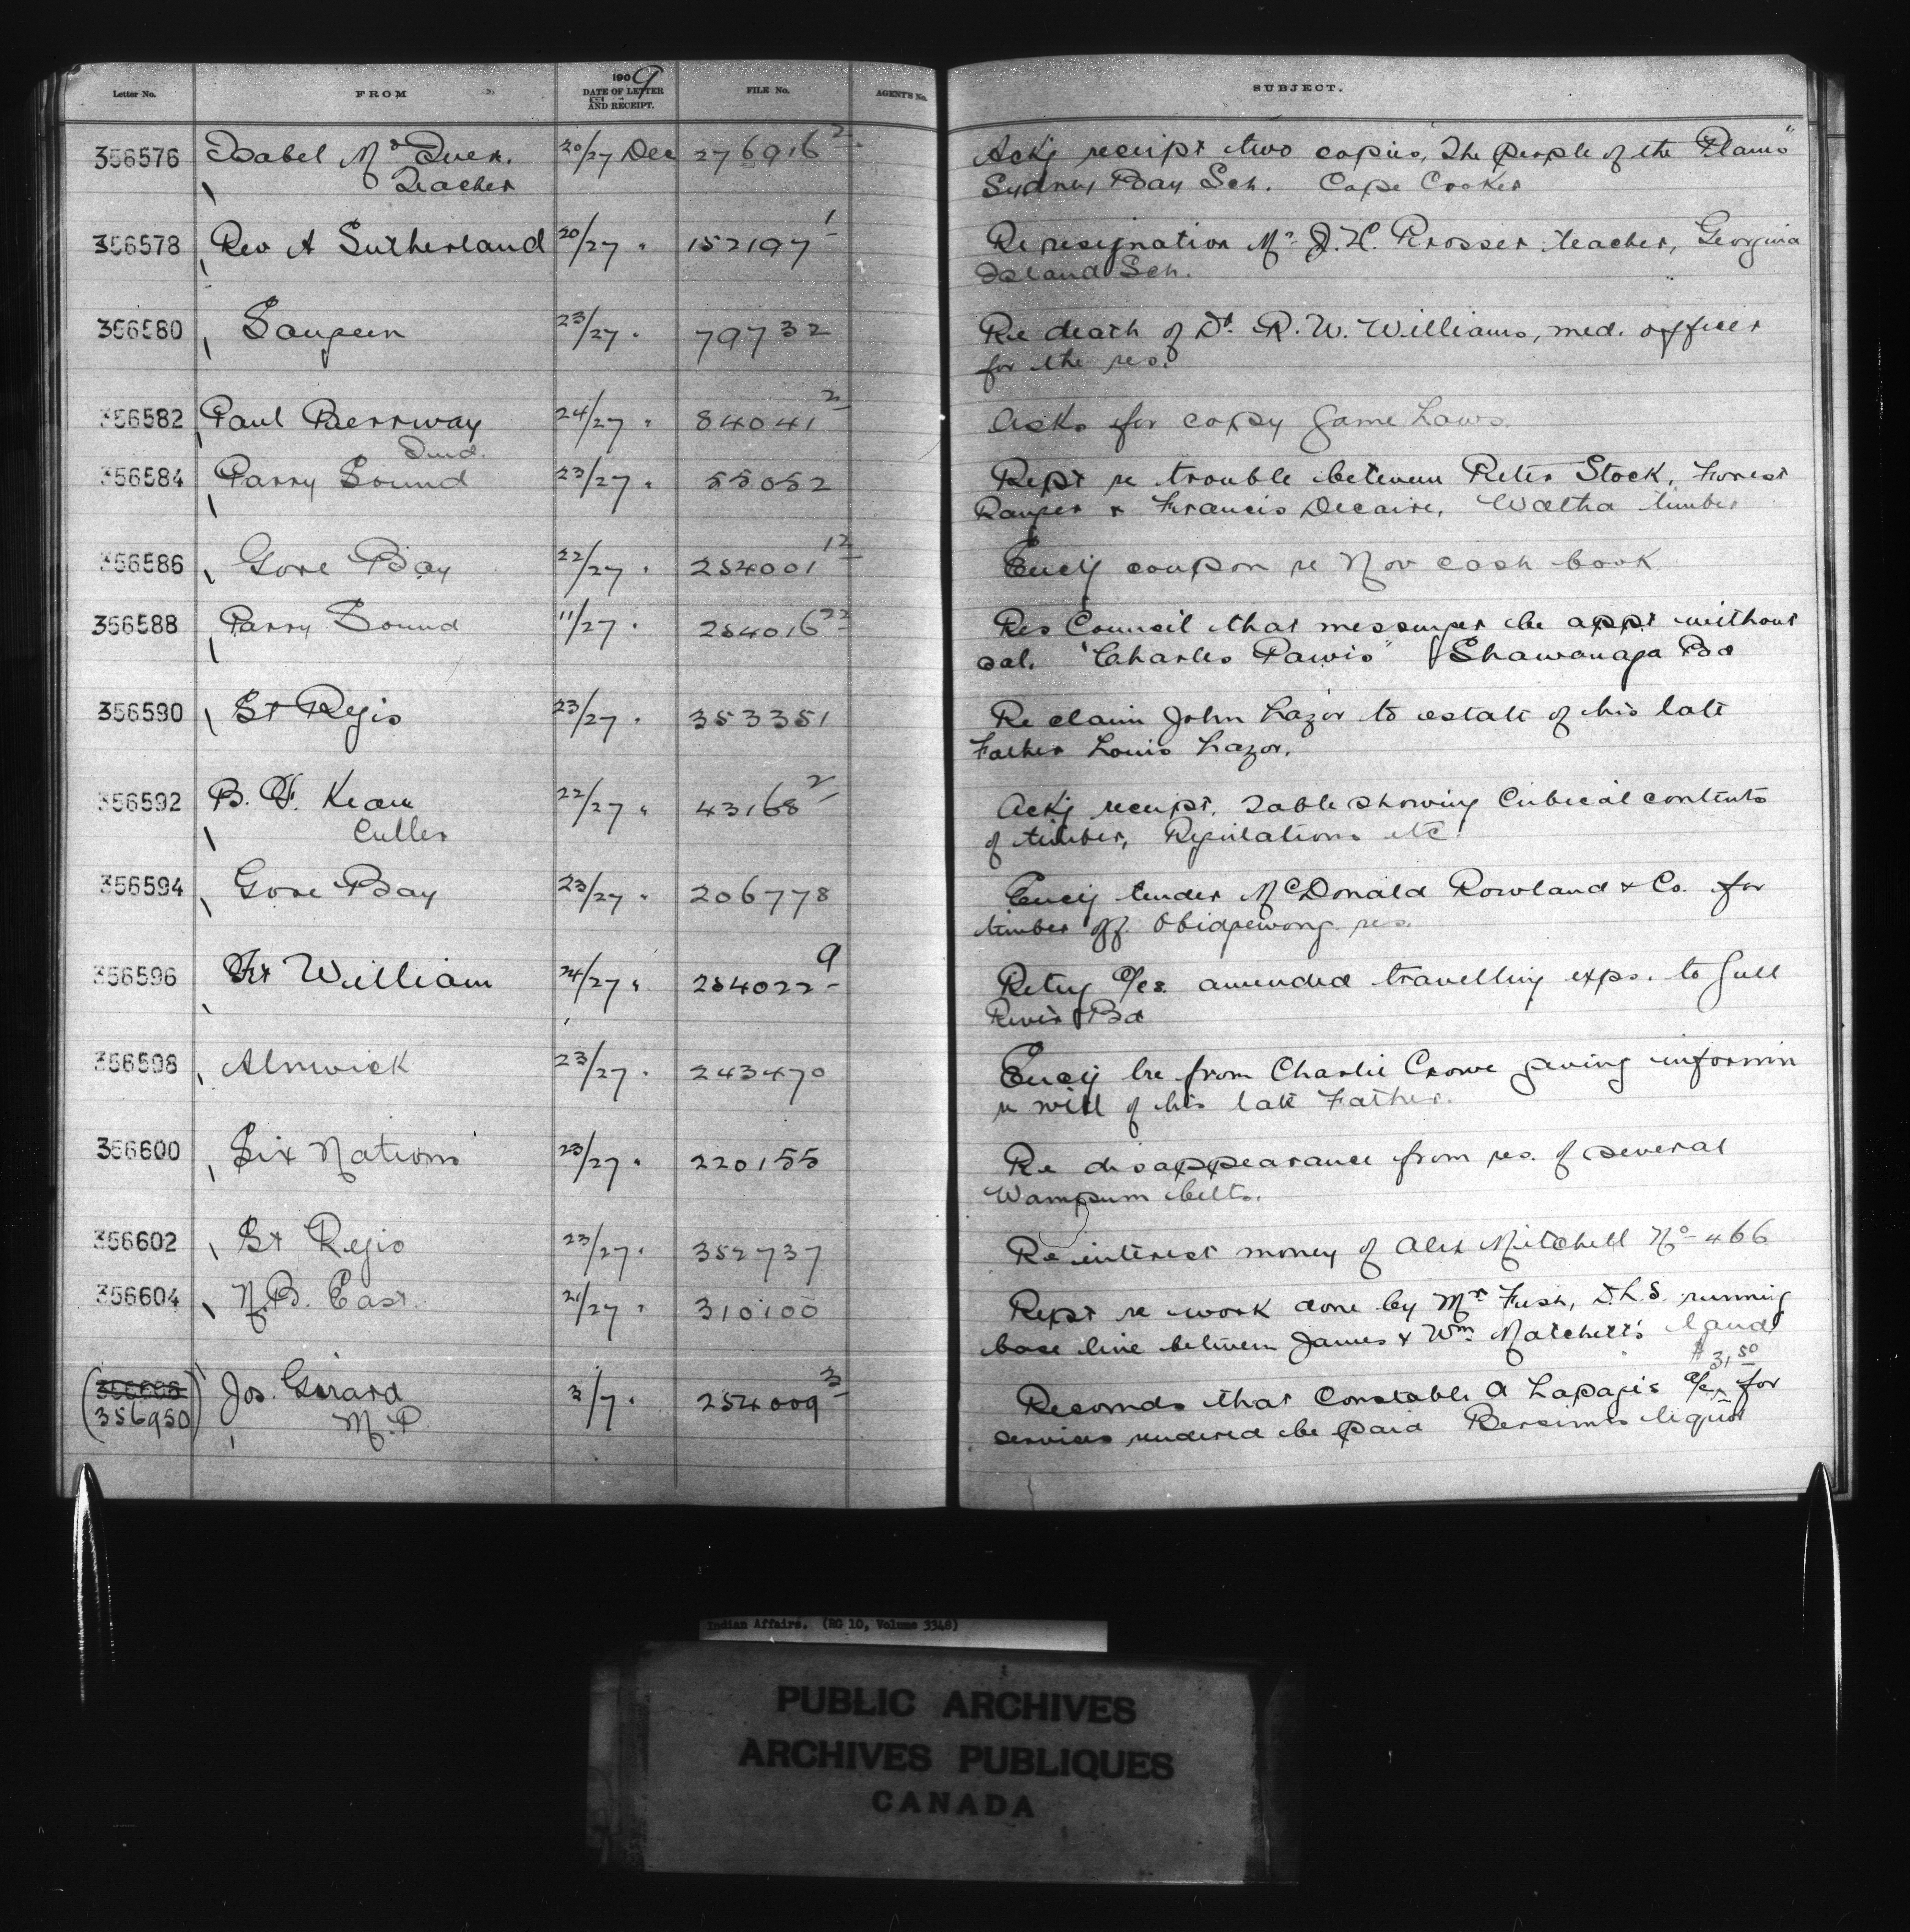 Letter No. FROM 1909 DATE OF LETTER AND RECEIPT. FILE No. AGENT'S No. SUBJECT.
356576 Isabel Mc Iver. 20/27 Dec 276916 2 Ackg receipt two copies, The people of the Plains"
Teacher Sydney Bay Sch. Cape Croker
356578 Rev A Sutherland 20/27 " 152197 1 Re resignation Mr J. H. Prosser teacher, Georgina
Island Sch.
356580 Saugeen 23/27 " 79732 Re death of Dr. R. W. Williams, med. officer
for the res.
356582 Paul Berrway 24/27 " 84041 2 Asks for copy Game Laws.
Ind.
356584 Parry Sound 23/27 " 55052 Rept re trouble between Peter Stock, Forest
Ranger & Francis Decaire, Watha timber
356586 Gore Bay 22/27 " 254001 12 Encg coupon re Nov cash book
356588 Parry Sound 11/27 " 254016 22 Res Council that messenger be appt without
sal. "Charles Pawis" Shawanaga Bd
356590 St Regis 23/27 " 353351 Re claim John Lazor to estate of his late
Father Louis Lazor.
356592 B. F. Kean 22/27 " 43168 2 Ackg receipt. Table showing Cubical contents
Culler of timber, Regulations etc.
356594 Gore Bay 23/27 " 206778 Encg tender McDonald Rowland & Co. for
timber off Obidgewong res.
356596 Ft William 24/27 " 254022 9 Retng a/cs. amended travelling exps. to Gull
River Bd
356598 Alnwick 23/27 " 243470 Encg lre from Charlie Crowe giving informn
re will of his late Father.
356600 Six Nations 23/27 " 220155 Re disappearance from res. of several
Wampum belts.
356602 St Regis 23/27 " 352737 Re interest money of Alex Mitchell No 466
356604 N.B. East. 21/27 " 310100 Rept re work done by Mr Fish, D.L.S. running
base line between James & Wm Matchett's land
$31,50
(356606 Jos. Girard 3/7 " 254009 3 Recomds that Constable A Lapage's a/c for
356950) M.P. services rendered be paid Bersimis liquor
Indian Affairs. (RG 10, Volume 3348)
PUBLIC ARCHIVES
ARCHIVES PUBLIQUES
CANADA